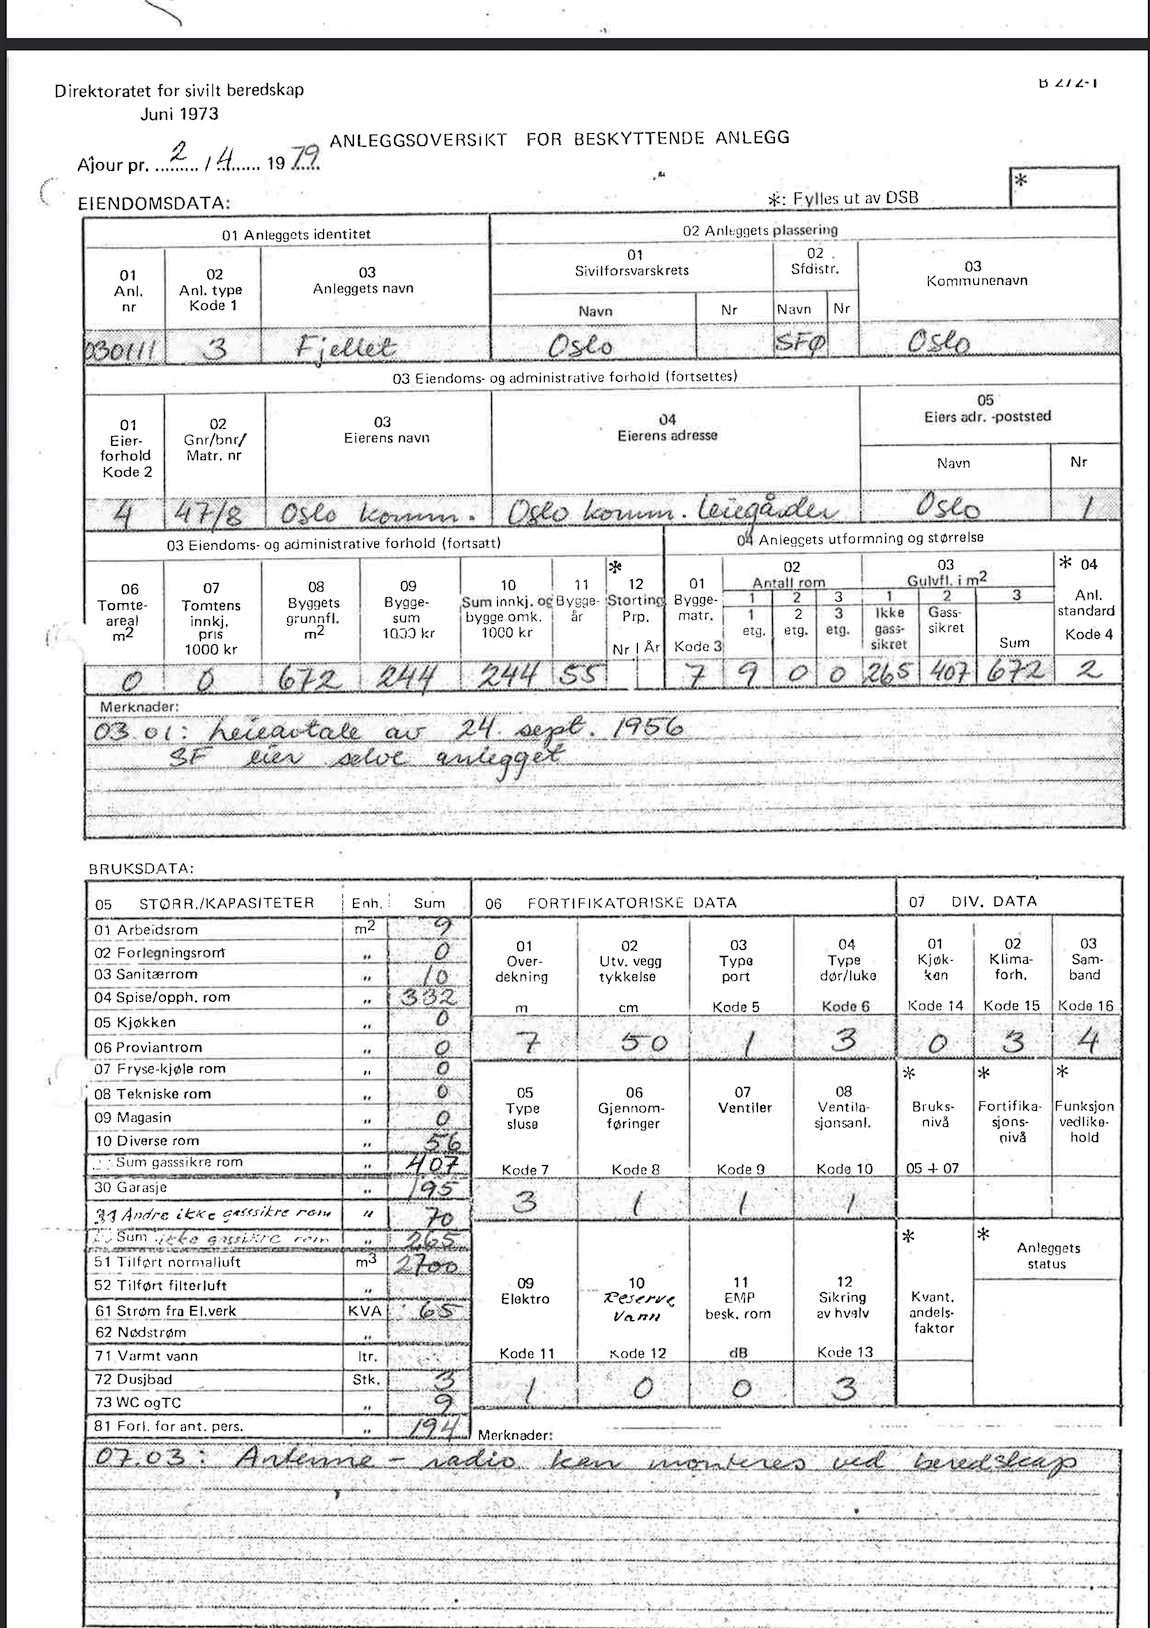 Direktoratet for sivilt beredskap
Juni 1973
B 272-1
ANLEGGSOVERSIKT FOR BESKYTTENDE ANLEGG
Ajour pr. 2 / 4 1979
EIENDOMSDATA:
*: Fylles ut av DSB
*
01 Anleggets identitet
02 Anleggets plassering
01 Anl. nr
02 Anl. type Kode 1
03 Anleggets navn
01 Sivilforsvarskrets
02 Sfdistr.
03 Kommunenavn
Navn Nr Navn Nr
030111 3 Fjellet Oslo SFØ Oslo
03 Eiendoms- og administrative forhold (fortsettes)
01 Eier-forhold Kode 2
02 Gnr/bnr/ Matr. nr
03 Eierens navn
04 Eierens adresse
05 Eiers adr. -poststed
Navn Nr
4 47/8 Oslo komm. Oslo komm. leiegårder Oslo 1
03 Eiendoms- og administrative forhold (fortsatt)
04 Anleggets utformning og størrelse
06 Tomte-areal m2
07 Tomtens innkj. pris 1000 kr
08 Byggets grunnfl. m2
09 Bygge-sum 1000 kr
10 Sum innkj. og bygge omk. 1000 kr
11 Bygge-år
* 12 Storting Prp. Nr År
01 Bygge-matr. Kode 3
02 Antall rom
1 2 3
1 etg. 2 etg. 3 etg.
03 Gulvfl. i m2
1 Ikke gass-sikret
2 Gass-sikret
3 Sum
* 04 Anl. standard Kode 4
0 0 672 244 244 55 7 9 0 0 265 407 672 2
Merknader:
03 01: Leieavtale av 24. sept. 1956
SF eier selve anlegget
BRUKSDATA:
05 STØRR./KAPASITETER Enh. Sum
01 Arbeidsrom m2 9
02 Forlegningsrom „ 0
03 Sanitærrom „ 10
04 Spise/opph. rom „ 332
05 Kjøkken „ 0
06 Proviantrom „ 0
07 Fryse-kjøle rom „ 0
08 Tekniske rom „ 0
09 Magasin „ 0
10 Diverse rom „ 56
Sum gasssikre rom „ 407
30 Garasje „ 195
31 Andre ikke gasssikre rom „ 70
Sum ikke gassikre rom „ 265
51 Tilført normalluft m3 2700
52 Tilført filterluft „
61 Strøm fra El.verk KVA 65
62 Nødstrøm „
71 Varmt vann ltr.
72 Dusjbad Stk. 3
73 WC og TC „ 9
81 Forl. for ant. pers. „ 194
06 FORTIFIKATORISKE DATA
01 Over-dekning m
02 Utv. vegg tykkelse cm
03 Type port Kode 5
04 Type dør/luke Kode 6
7 50 1 3
05 Type sluse Kode 7
06 Gjennom-føringer Kode 8
07 Ventiler Kode 9
08 Ventila-sjonsanl. Kode 10
3 1 1 1
09 Elektro Kode 11
10 Reserve vann Kode 12
11 EMP besk. rom dB
12 Sikring av hvelv Kode 13
1 0 0 3
07 DIV. DATA
01 Kjøk-ken Kode 14
02 Klima-forh. Kode 15
03 Sam-band Kode 16
0 3 4
* Bruks-nivå 05 + 07
* Fortifika-sjons-nivå
* Funksjon vedlike-hold
* Kvant. andels-faktor
* Anleggets status
Merknader:
07.03: Antenne - radio kan monteres ved beredskap